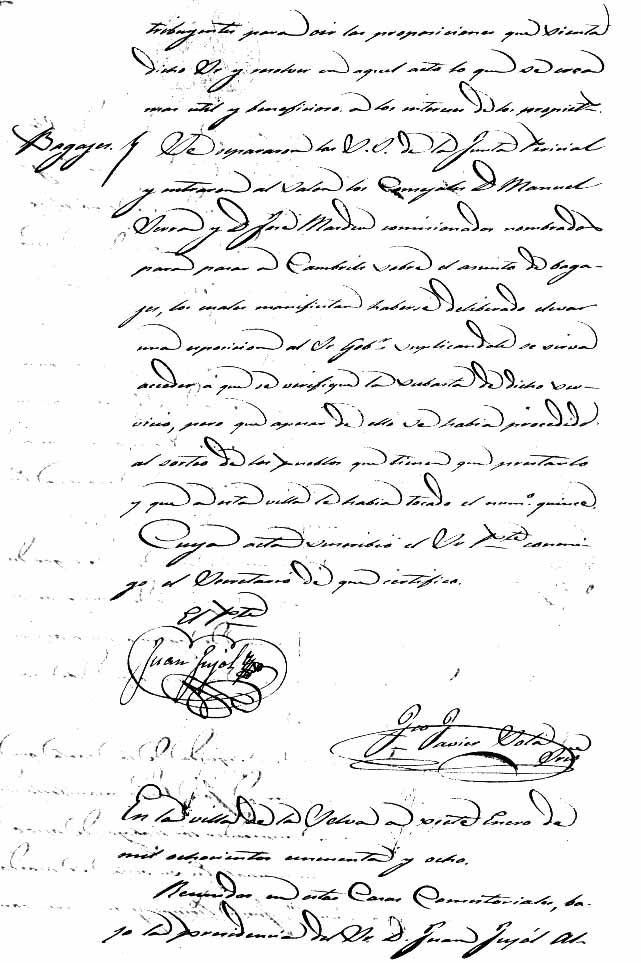 tribuyentes para oir las proposiciones que sienta
dicho Sr y resolver en aquel acto lo que se crea
mas util y beneficioso a los intereses de los propiets.
Bagajes. Se separaron los S.S. de la Junta Pericial
y entraron al salon los Concejales D. Manuel
Serra y D. José Mardeu comisionados nombrados
para pasar a Cambrils sobre el asunto de baga-
jes, los cuales manifiestan haberse deliberado elevar
una esposicion al Sr Gobr. suplicandole se sirva
acceder á que se verifique la subasta de dicho ser-
vicio, pero que apesar de ello se habia procedido
al sorteo de los pueblos que tienen que prestarlo
y que a esta villa le habia tocado el numo. quince.
Cuya acta suscribió el Sr Pte conmi-
go el Secretario de que certifico.
El Pte
Juan Jujol
Fco Javier Sola
Srio
En la villa de la Selva a siete Enero de
mil ochocientos cincuenta y ocho.
Reunidos en estas Casas Consistoriales, ba-
jo la presidencia del Sr. D. Juan Jujol Al-